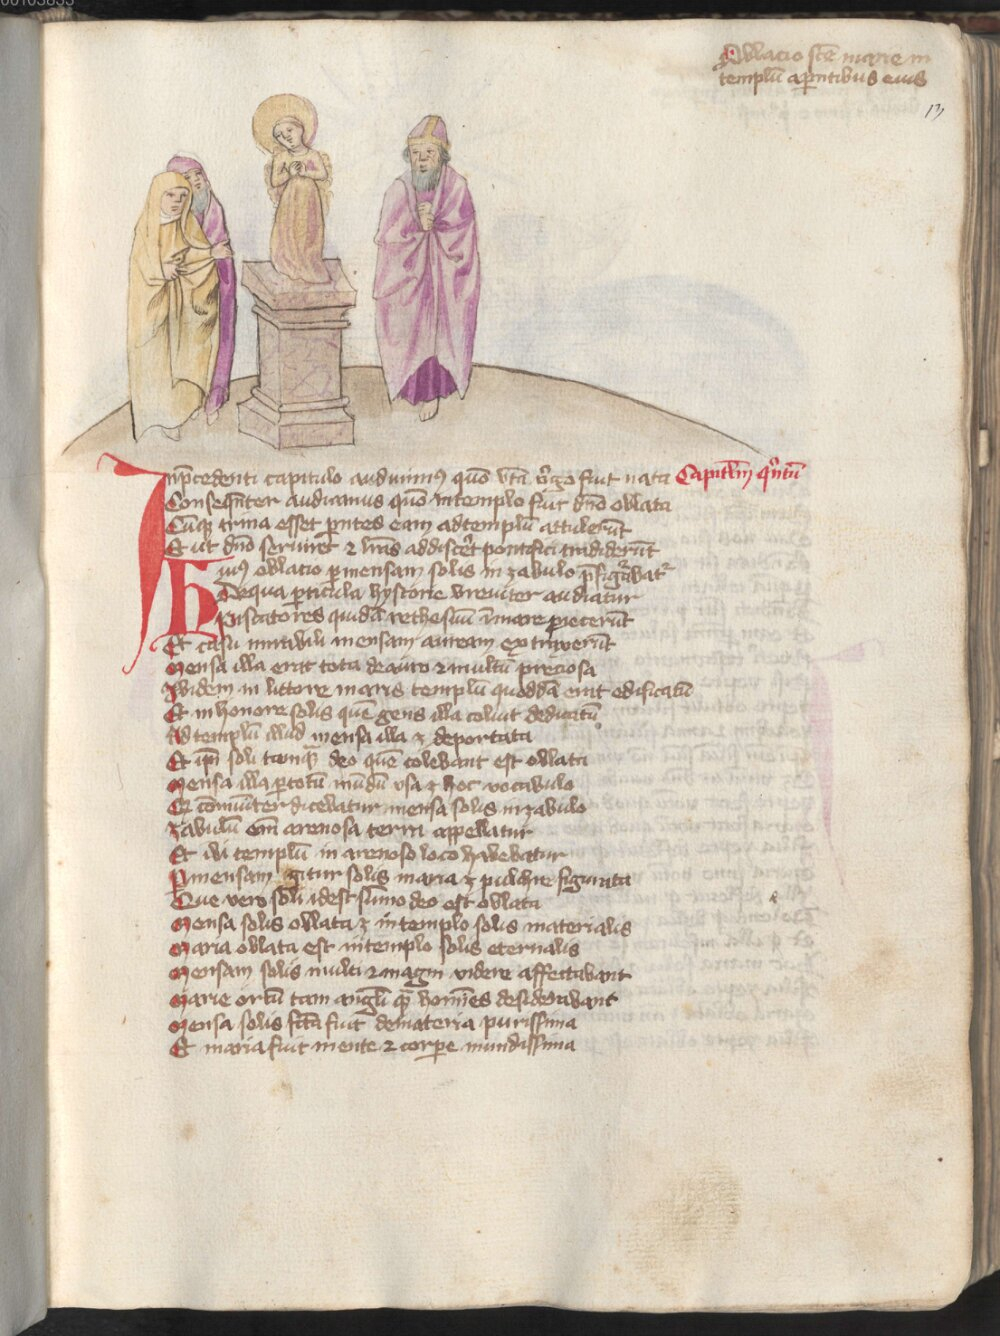 Oblacio scē marie in
templū a pēntibus eius
13
In p̄cedenti capitulo audivim9 quō bt̄a v̄go fuit nata Capitl̄m qi̅ntū
Conseqn̄ter audiamus quō in templo fuit dn̄o oblata
Cūq trima esset pn̄tes eam ad templū attulerūt
Et ut dn̄o serviret ⁊ lrās addiscēt pontifici tradiderūt
Hui9 oblacio p mensam solis in zabulo p̄figu̅bat᷑
De qua pticula hystorie breviter audiatur
Piscatores quidā rethe suū ī mare piecerūt
Et casu mirabili mensam auream extraxerūt
Mensa illa erat tota de auro ⁊ multū preciosa
Ibidem in littore maris templū quoddā erat edificatū
Et in honore solis quē gens illa coluit dedicatū
Ad templū illud mensa illa ÷ deportata
Et ip̄i soli tamq̄ deo quē colebant est oblata
Mensa illa p totū mūdū usa ÷ hoc vocabulo
Q cōmuīter dicebatur mensa solis in zabulo
Zabulū em̄ arenosa terra appellatur
Et ibi templū in arenoso loco habebatur
P mensam igitur solis maria ÷ pulchre figurata
Que vero soli id est sūmo deo est oblata
Mensa solis oblata ÷ in templo solis materialis
Maria oblata est in templo solis eternalis
Mensam solis multi ⁊ magni videre affectabant
Marie ortū tam angl̄i q̄ homīes desiderabant
Mensa solis fc̄ta fuit de materia purissima
Et maria fuit mente ⁊ corpe mundissima